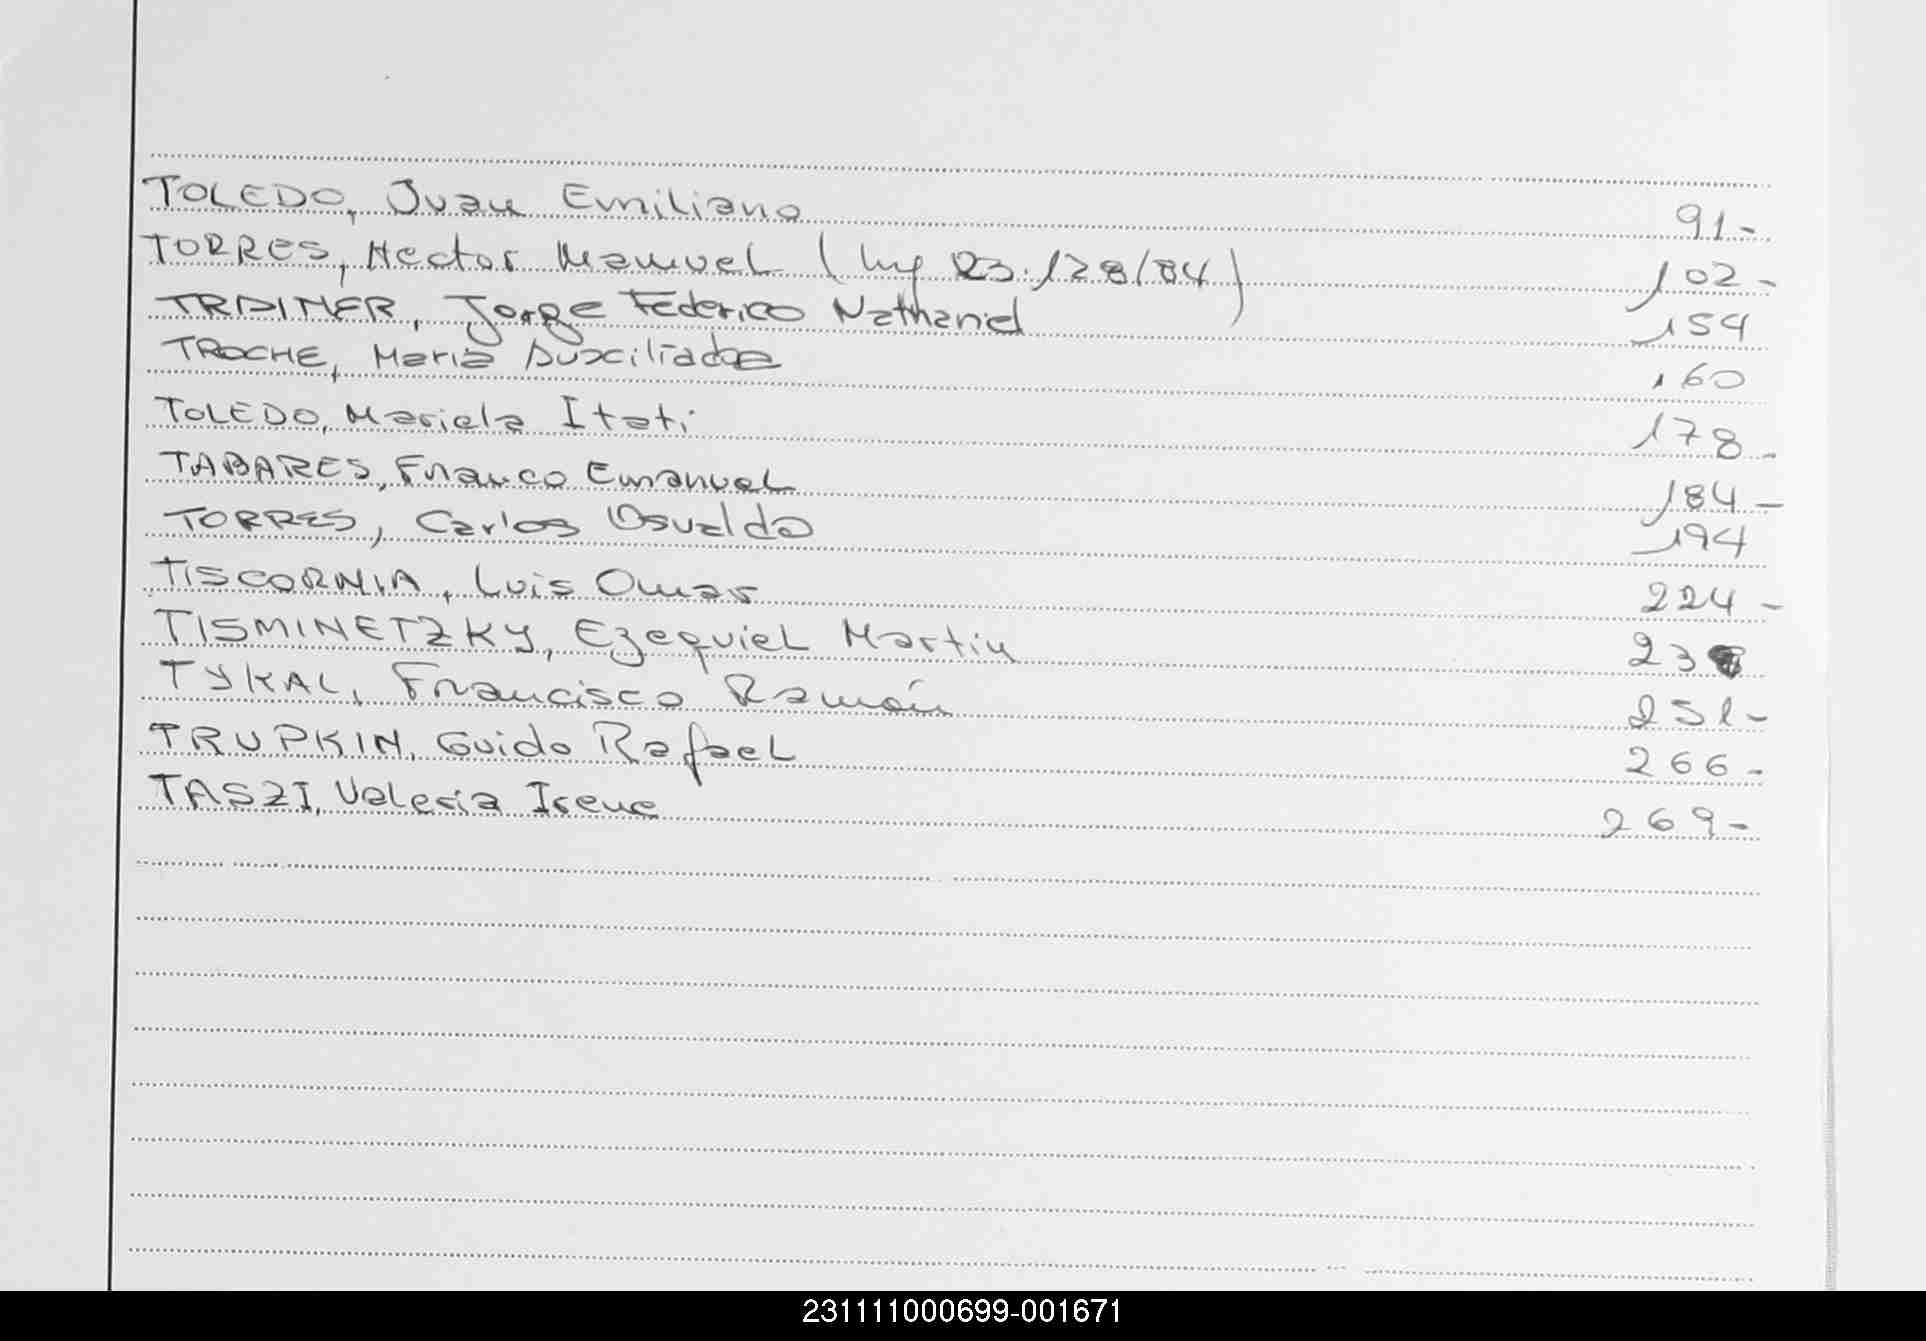 TOLEDO, Juan Emiliano 91-
TORRES, Hector Manuel (ley 23.128/84) 102-
Jorge Federico Nathaniel 154
TROCHE, Maria Auxiliadora 160
TOLEDO, Mariela Itati 178-
TABARES, Franco Emanuel 184-
TORRES, Carlos Osvaldo 194
TISCORNIA, Luis Omar 224-
TISMINETZKY, Ezequiel Martin
TYKAL, Francisco Ramón 251-
TRUPKIN, Guido Rafael 266-
TASZI, Valeria Irene 269-
231111000699-001671